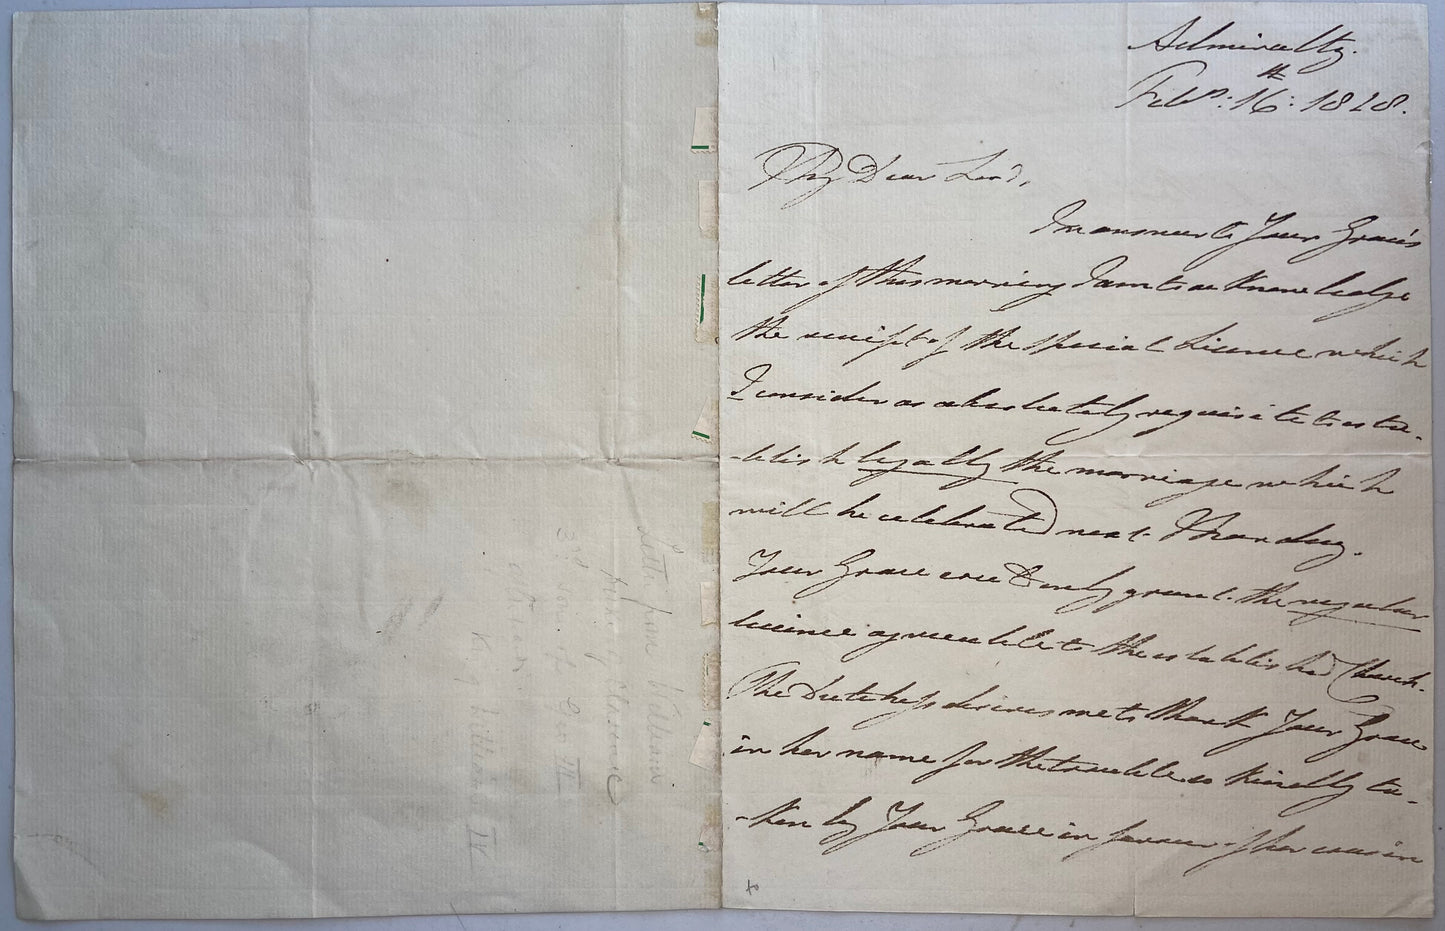 Admiralty.
Feb:ry: 16th: 1828.
My Dear Lord,
In answer to Your Grace's
letter of this morning I am to acknowledge
the receipt of the special Licence which
I consider as absolutely requisite to esta-
-blish legally the marriage which
will be celebrated next Thursday.
Your Grace could only grant the regular
licence agreeable to the established Church.
The Dutchess desires me to thank Your Grace
in her name for the trouble so kindly ta-
-ken by Your Grace in favour of her cousin
Letter from William
Duke of Clarence
3rd son of Geo III
afterwards
K. William IV